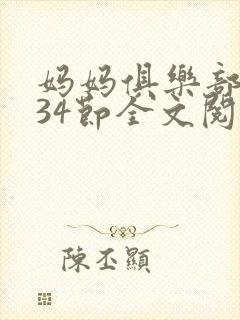 妈妈俱樂部
34節全文閱
陳丕顯